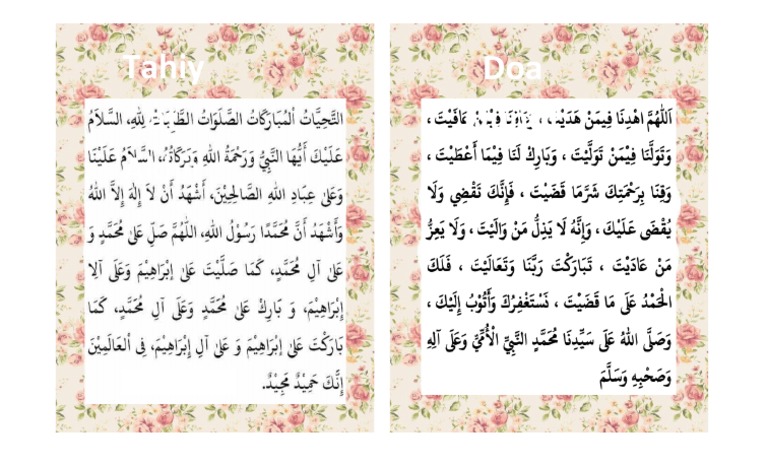 Tahiy
التَّحِيَّاتُ اْلمُبَارَكَاتُ الصَّلَوَاتُ الطَّيِّبَاتُ لِلّٰهِ، السَّلاَمُ
عَلَيْكَ أَيُّهَا النَّبِيُّ وَرَحْمَةُ اللهِ وَبَرَكَاتُهُ، السَّلاَمُ عَلَيْنَا
وَعَلىٰ عِبَادِ اللهِ الصَّالِحِيْنَ، أَشْهَدُ أَنْ لاَ إِلٰهَ إِلاَّ اللهُ
وَأَشْهَدُ أَنَّ مُحَمَّدًا رَسُوْلُ اللهِ، اللّٰهُمَّ صَلِّ عَلىٰ مُحَمَّدٍ وَ
عَلىٰ آلِ مُحَمَّدٍ، كَمَا صَلَّيْتَ عَلىٰ إِبْرَاهِيْمَ وَعَلَى آلِ
إِبْرَاهِيْمَ، وَ بَارِكْ عَلىٰ مُحَمَّدٍ وَعَلَى آلِ مُحَمَّدٍ، كَمَا
بَارَكْتَ عَلىٰ إِبْرَاهِيْمَ وَ عَلىٰ آلِ إِبْرَاهِيْمَ، فِى اْلعَالَمِيْنَ
إِنَّكَ حَمِيْدٌ مَجِيْدٌ.
Doa
اَللّٰهُمَّ اهْدِنَا فِيمَنْ هَدَيْتَ ، وَعَافِنَا فِيمَنْ عَافَيْتَ ،
وَتَوَلَّنَا فِيْمَنْ تَوَلَّيْتَ ، وَبَارِكْ لَنَا فِيْمَا أَعْطَيْتَ ،
وَقِنَا بِرَحْمَتِكَ شَرَّمَا قَضَيْتَ ، فَإِنَّكَ تَقْضِي وَلَا
يُقْضَى عَلَيْكَ ، وَإِنَّهُ لَا يَذِلُّ مَنْ وَالَيْتَ ، وَلَا يَعِزُّ
مَنْ عَادَيْتَ ، تَبَارَكْتَ رَبَّنَا وَتَعَالَيْتَ ، فَلَكَ
الْحَمْدُ عَلَى مَا قَضَيْتَ ، نَسْتَغْفِرُكَ وَأَتُوْبُ إِلَيْكَ ،
وَصَلَّى اللهُ عَلَى سَيِّدِنَا مُحَمَّدٍ النَّبِيِّ الْأُمِّيِّ وَعَلَى آلِهِ
وَصَحْبِهِ وَسَلَّمَ